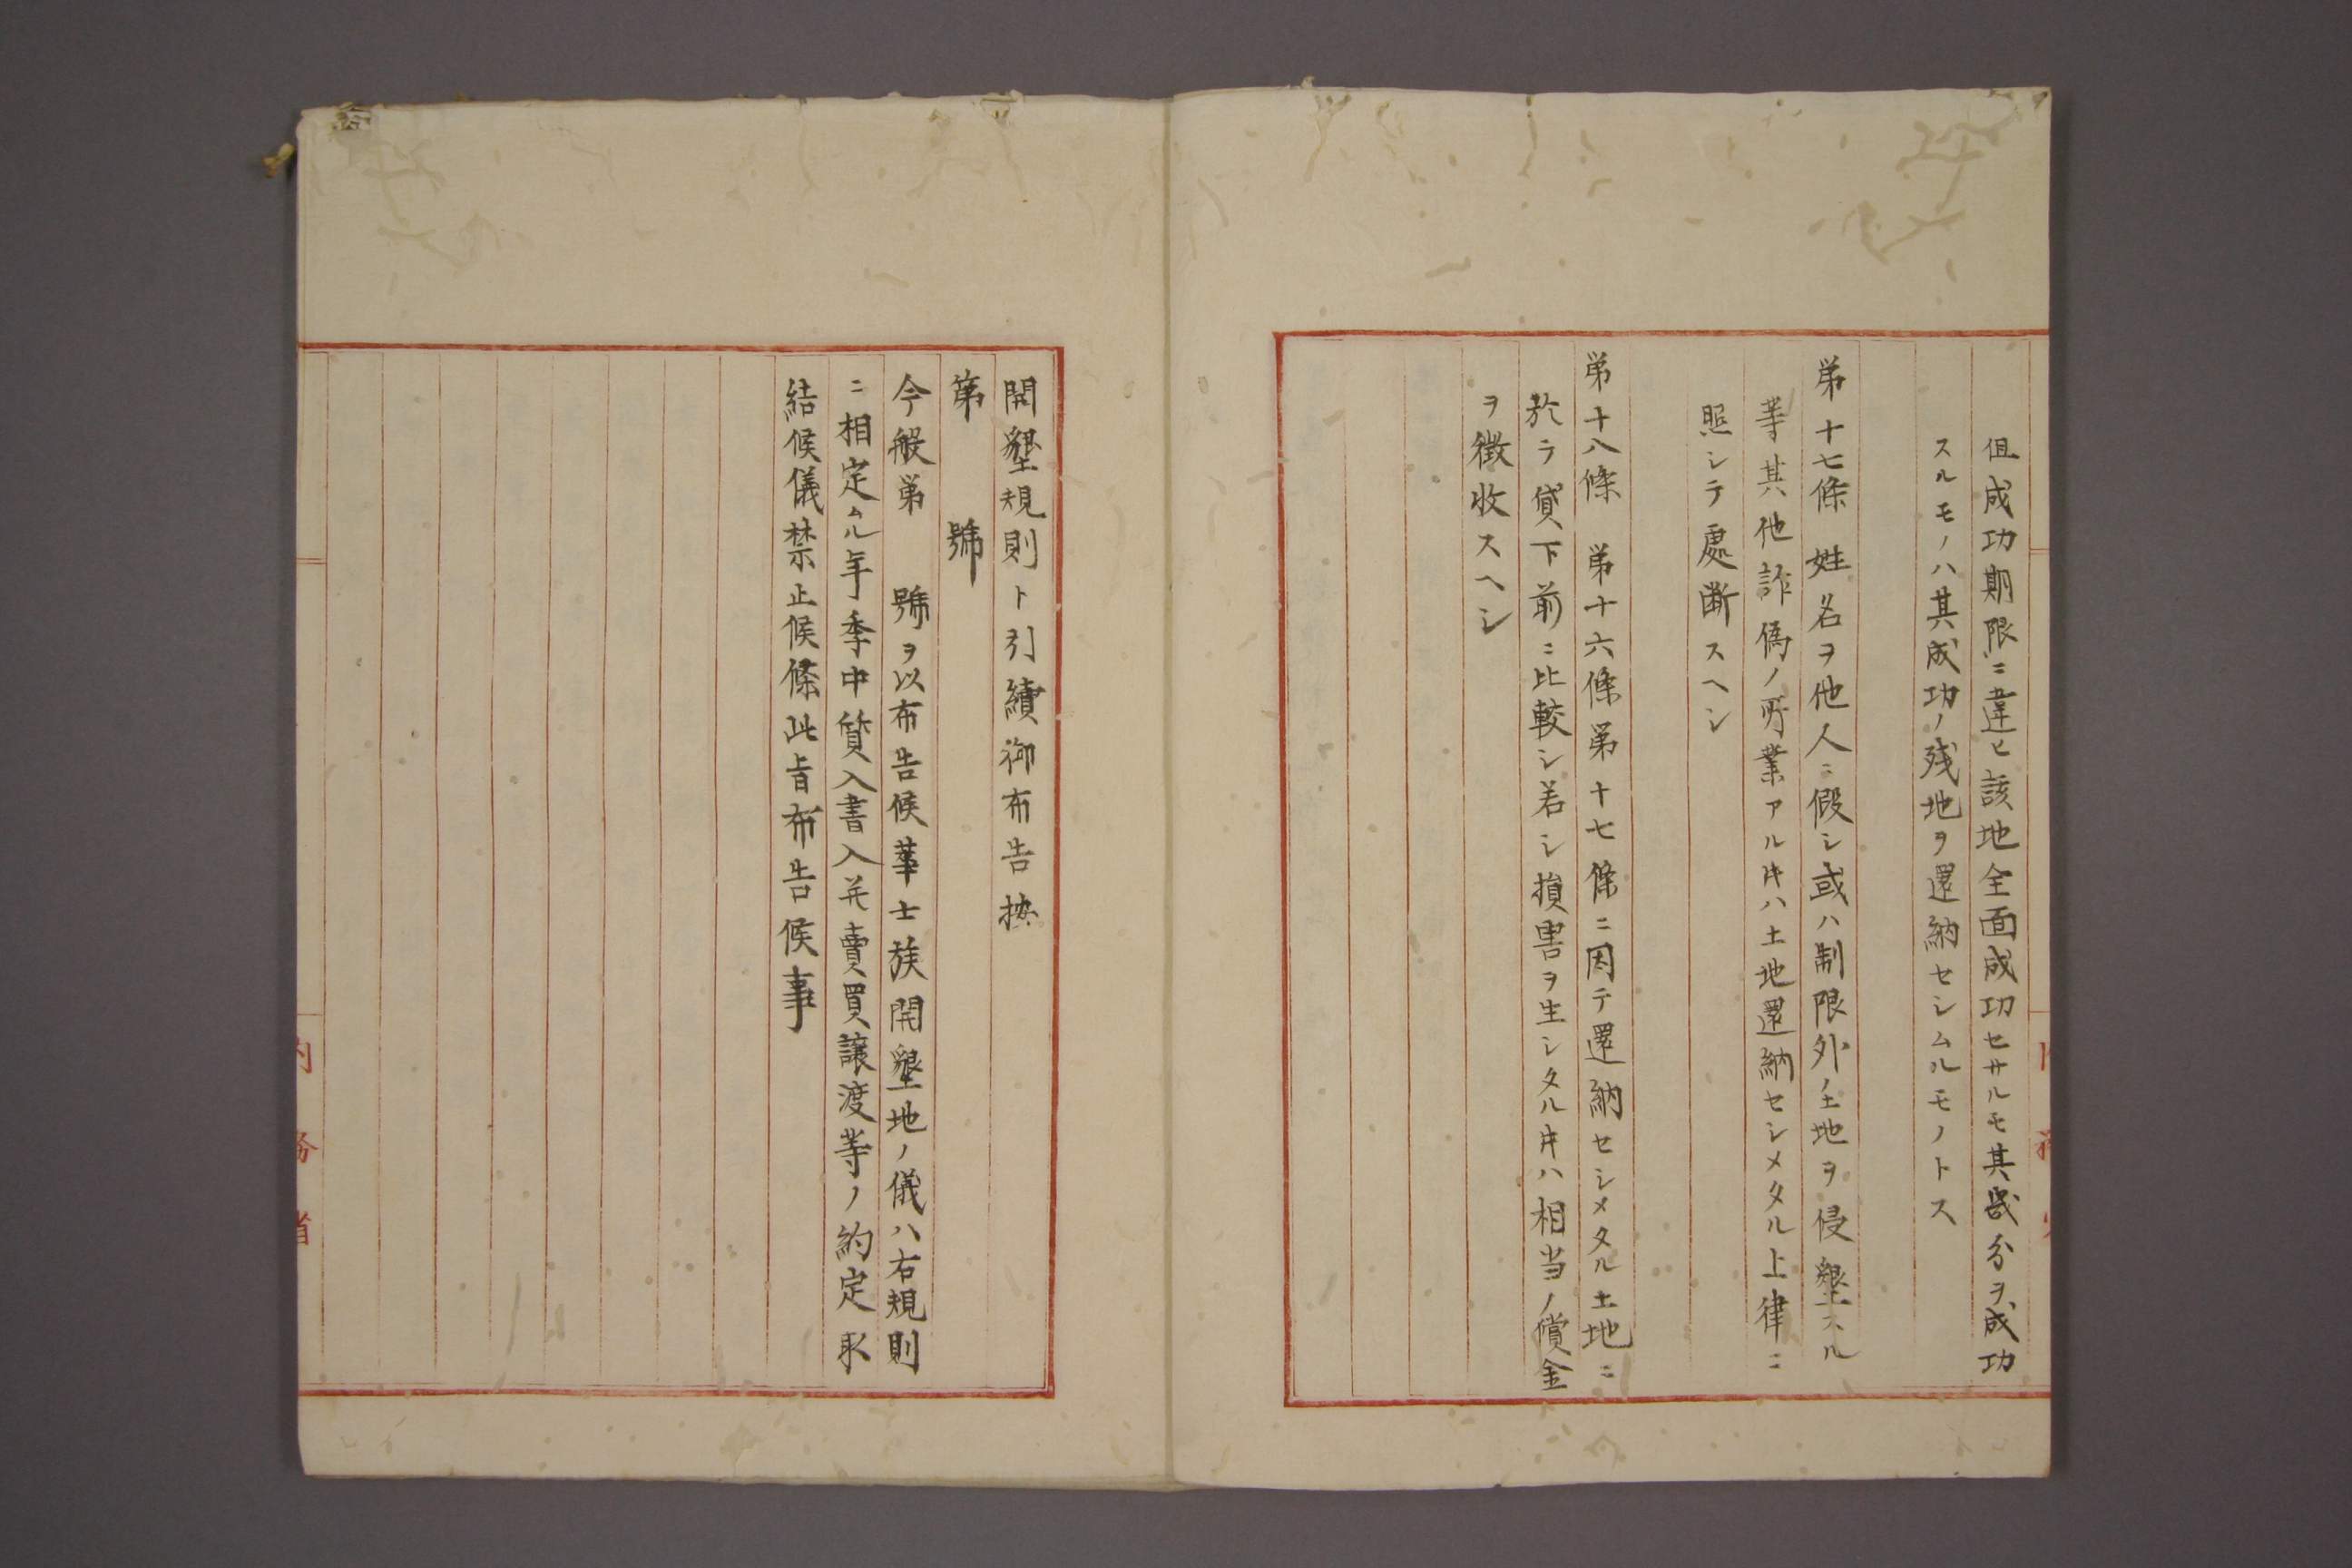 但成功期限ニ違ヒ該地全面成功セサルモ其幾分ヲ成功
スルモノハ其成功ノ残地ヲ還納セシムルモノトス
第十七條　姓名ヲ他人ニ假シ或ハ制限外ノ土地ヲ侵墾スル
等其他詐偽ノ所業アルキハ土地還納セシメタル上律ニ
照シテ處断スヘシ
第十八條　第十六條第十七條ニ因テ還納セシメタル土地ニ
於テ貸下前ニ比較シ若シ損害ヲ生シタルキハ相当ノ償金
ヲ徴收スヘシ
開墾規則ト引續御布告按
第　　號
今般第　號ヲ以布告候華士族開墾地ノ儀ハ右規則
ニ相定ル年季中質入書入并賣買譲渡等ノ約定取
結候儀禁止候條此旨布告候事
内務省